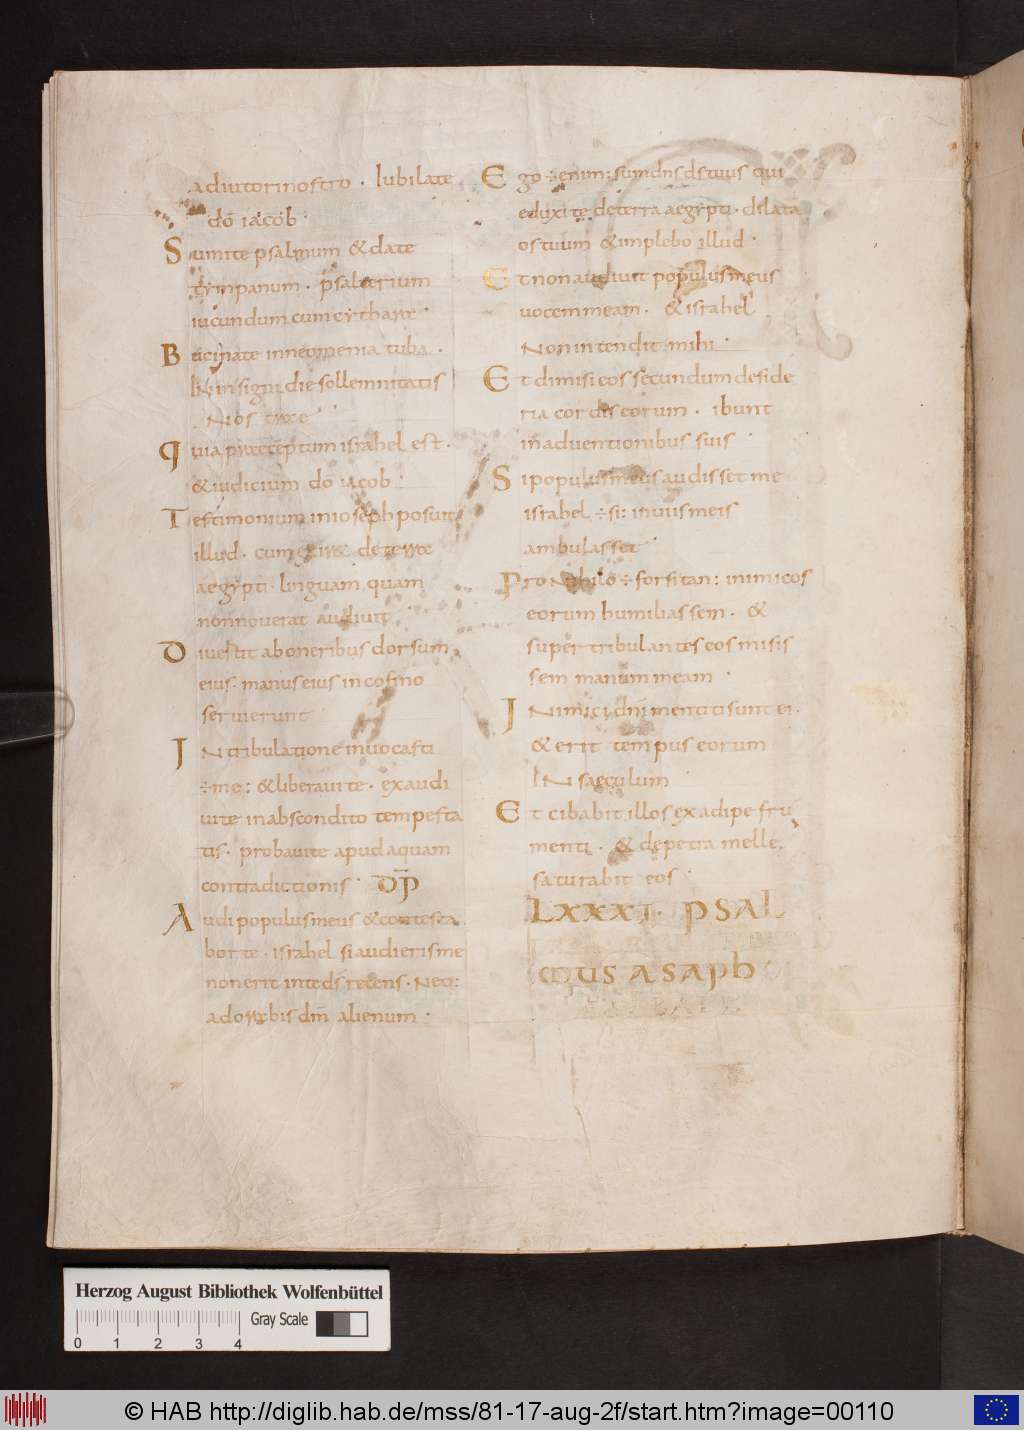 adiutori nostro · Iubilate
dō iacob ·
Sumite psalmum & date
tympanum · psalterium
iucundum cum cythara ·
Bucinate in neomenia tuba ·
IN insigni die sollemnitatis
Nostrae
quia praeceptum israhel est ·
& iudicium dō iacob ·
Testimonium in ioseph posuit
illud · cum exir& de terra
aegypti · linguam quam
non nouerat audiuit ·
Diuertit ab oneribus dorsum
eius · manus eius in cofino
seruierunt
IN tribulatione inuocasti
÷me: & liberaui te · exaudi
ui te in abscondito tempesta
tis · probaui te apud aquam
contradictionis · DP̄
Audi populus meus & contesta
bor te · israhel si audieris me
non erit in te ds recens · Neq:
adorabis dm̄ alienum ·
Ego ÷enim: sum dns ds tuus qui
eduxi te de terra aegypti · dilata
os tuum & implebo illud ·
Et non audiuit populus meus
uocem meam · & israhel
Non intendit mihi ·
Et dimisi eos secundum deside
ria cordis eorum · ibunt
in aduentionibus suis
Si populus meus audisset me
israhel ÷si: in uiis meis
ambulasset
Pro Nihilo ÷forsitan: inimicos
eorum humiliassem · &
super tribulantes eos misis
sem manum meam ·
INimici dn̄i mentiti sunt ei ·
& erit tempus eorum
IN saeculum
Et cibabit illos ex adipe fru
menti · & de petra melle
saturabit eos ·
LXXXI · PSAL
MUS ASAPH
Herzog August Bibliothek Wolfenbüttel
Gray Scale
0 1 2 3 4
© HAB http://diglib.hab.de/mss/81-17-aug-2f/start.htm?image=00110